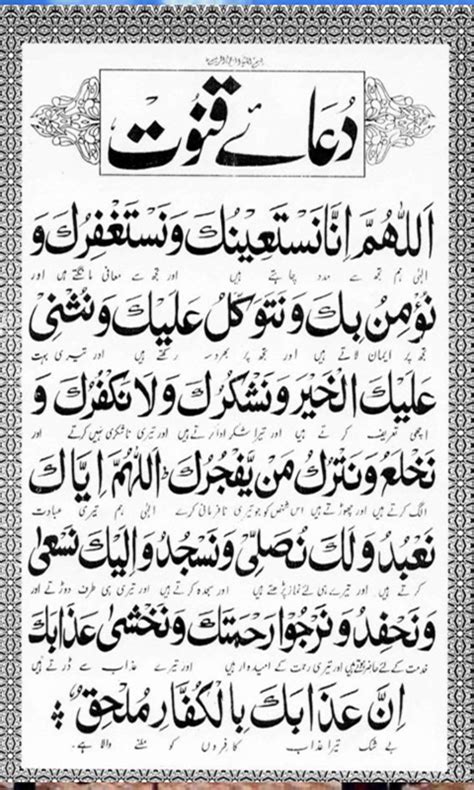 دُعائے قنوت
اَللّٰهُمَّ اِنَّا نَسْتَعِيْنُكَ وَنَسْتَغْفِرُكَ وَ
الٰہی ہم تجھ سے مدد چاہتے ہیں اور تجھ سے معافی مانگتے ہیں اور
نُؤْمِنُ بِكَ وَنَتَوَكَّلُ عَلَيْكَ وَنُثْنِىْ
تجھ پر ایمان لاتے ہیں اور تجھ پر بھروسہ رکھتے ہیں اور تیری بہت
عَلَيْكَ الْخَيْرَ وَنَشْكُرُكَ وَلَا نَكْفُرُكَ وَ
اچھی تعریف کرتے ہیں اور تیرا شکر ادا کرتے ہیں اور تیری ناشکری نہیں کرتے اور
نَخْلَعُ وَنَتْرُكُ مَنْ يَّفْجُرُكَ اَللّٰهُمَّ اِيَّاكَ
الگ کرتے ہیں اور چھوڑتے ہیں اس شخص کو جو تیری نافرمانی کرے الٰہی ہم تیری عبادت
نَعْبُدُ وَلَكَ نُصَلِّىْ وَنَسْجُدُ وَاِلَيْكَ نَسْعٰى
کرتے ہیں اور تیرے ہی لئے نماز پڑھتے ہیں اور سجدہ کرتے ہیں اور تیری ہی طرف دوڑتے اور
وَنَحْفِدُ وَنَرْجُوْا رَحْمَتَكَ وَنَخْشٰى عَذَابَكَ
خدمت کے لئے حاضر ہوتے ہیں اور تیری رحمت کے امیدوار ہیں اور تیرے عذاب سے ڈرتے ہیں
اِنَّ عَذَابَكَ بِالْكُفَّارِ مُلْحِقٌ
بے شک تیرا عذاب کافروں کو ملنے والا ہے۔